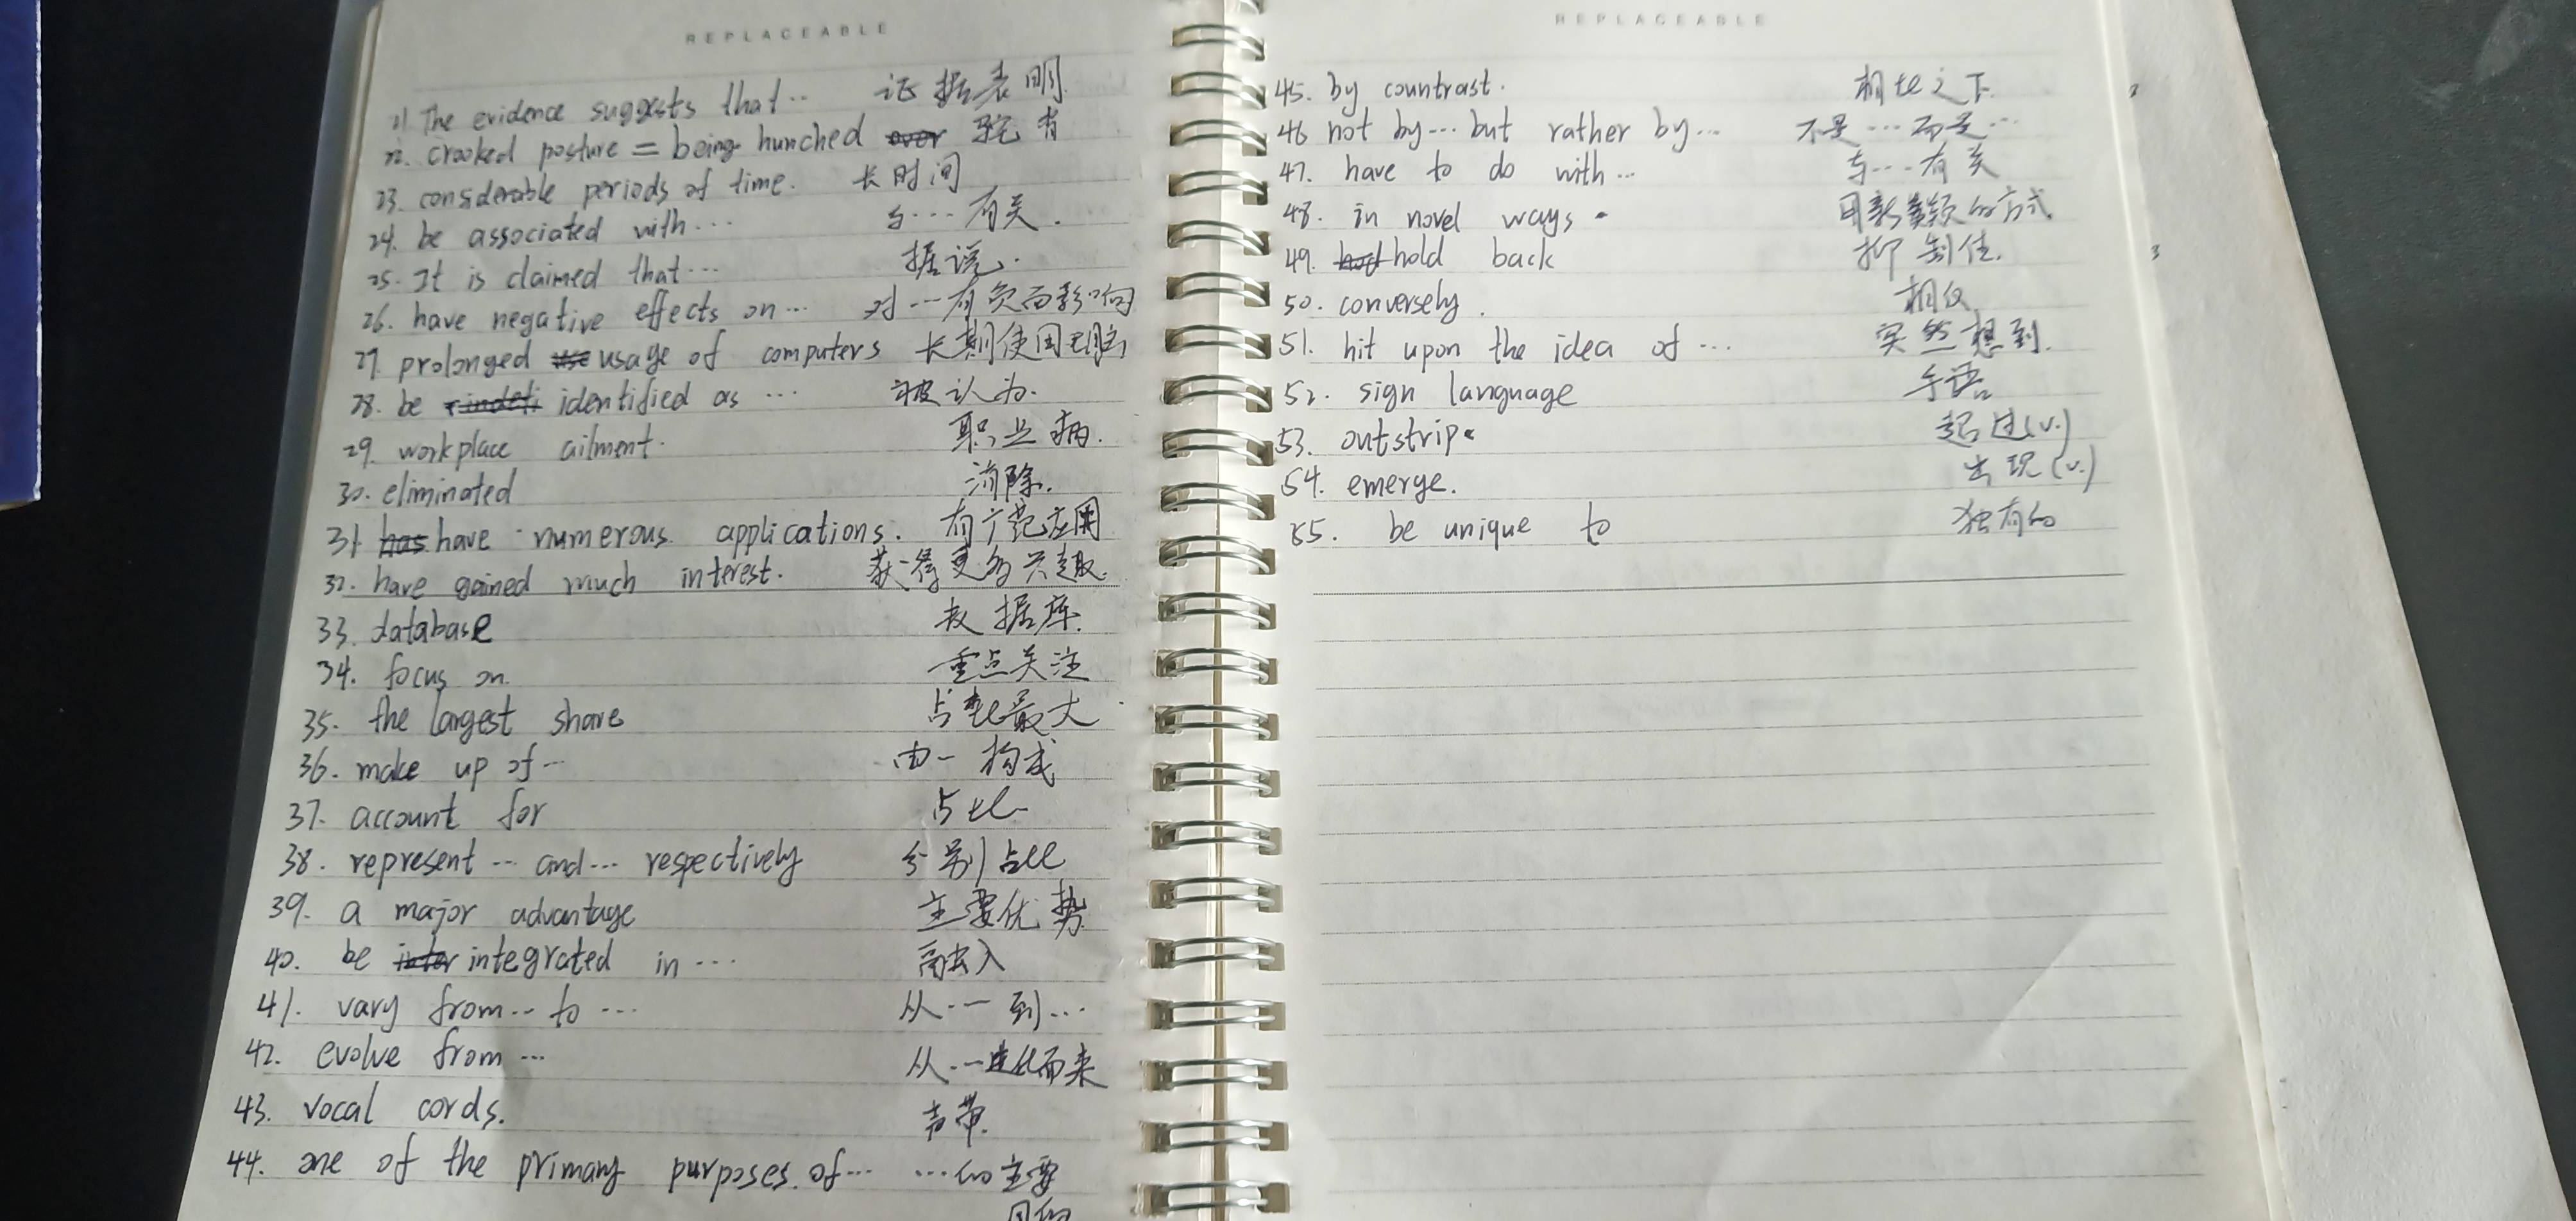 REPLACEABLE
21 The evidence suggests that… 证据表明.
22. crooked posture = being hunched over 驼背
23. considerable periods of time. 长时间
24. be associated with… 与…有关.
25. It is claimed that… 据说.
26. have negative effects on… 对…有负面影响
27. prolonged use usage of computers 长期使用电脑
28. be identified as … 被认为.
29. workplace ailment. 职业病.
30. eliminated 消除.
31 has have numerous applications. 有广范应用
32. have gained much interest. 获得更多兴趣.
33. database 数据库.
34. focus on. 重点关注
35. the largest share 占比最大
36. make up of… 由…构成
37. account for 占比
38. represent … and… respectively 分别占比
39. a major advantage 主要优势.
40. be inter integrated in … 融入
41. vary from… to … 从…到…
42. evolve from … 从…进化而来
43. vocal cords. 声带.
44. one of the primary purposes. of… …的主要
目的
REPLACEABLE
45. by countrast. 相比之下.
46 not by… but rather by… 不是…而是…
47. have to do with… 与…有关
48. in novel ways. 用新颖的方式.
49. hod hold back 抑制住.
50. conversely. 相反
51. hit upon the idea of … 突然想到.
52. sign language 手语
53. outstrip. 超过(v.)
54. emerge. 出现(v.)
55. be unique to 独有的